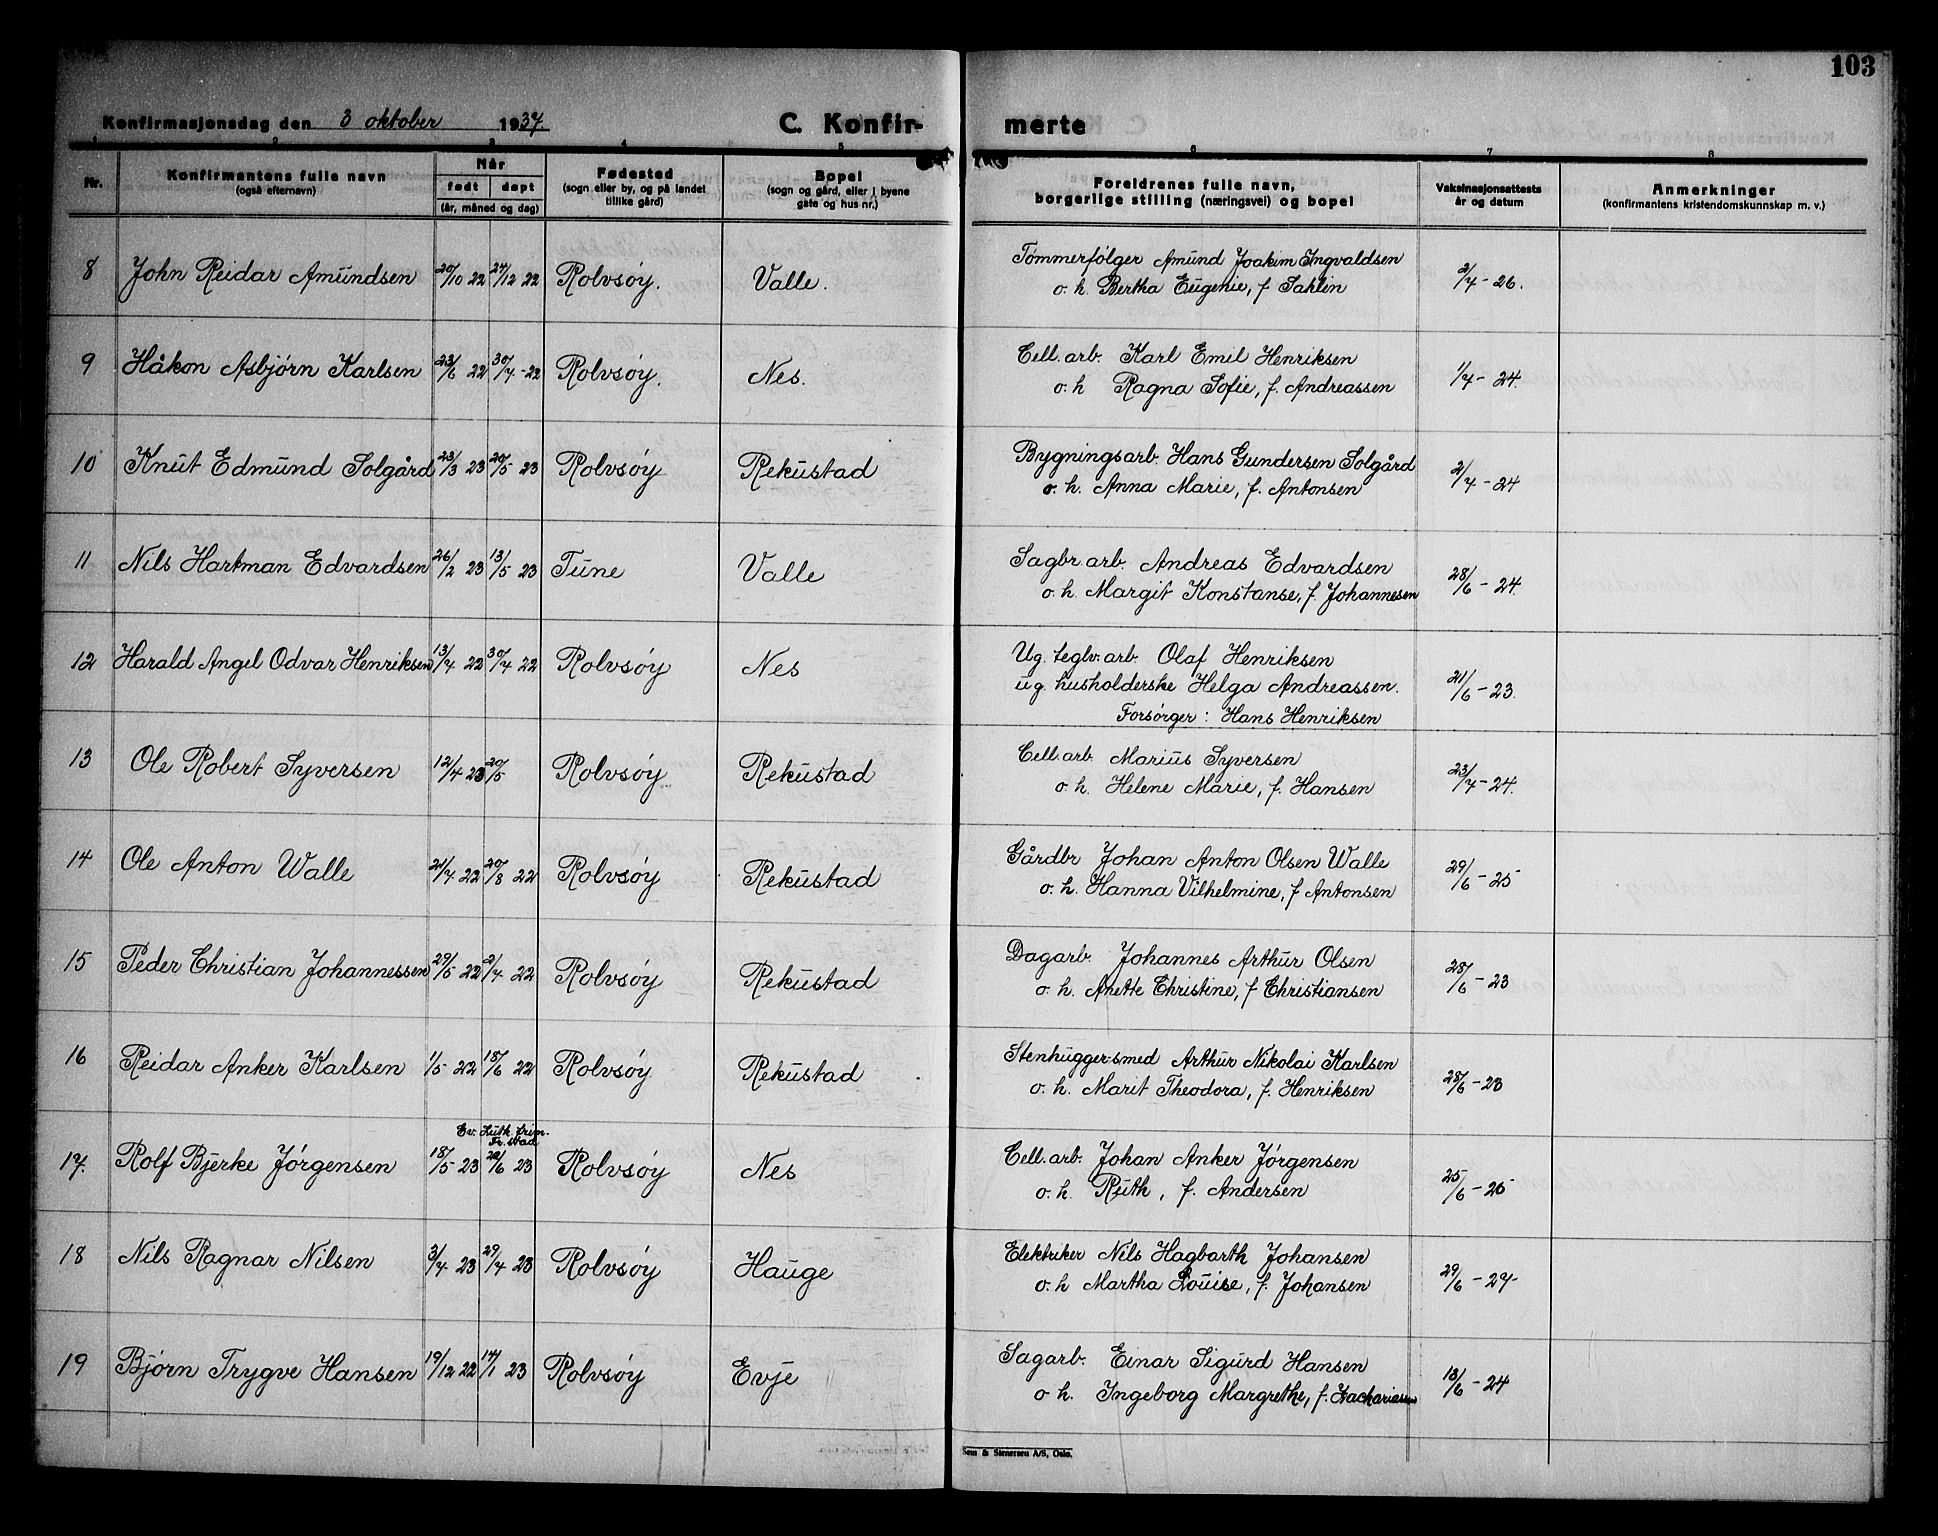 103
Konfirmasjonsdag den 3 oktober 1937.
C. Konfir-
merte
1 2 3 4 5 6 7 8
Nr.
Konfirmantens fulle navn
(også efternavn)
Når
født døpt
(år, måned og dag)
Fødested
(sogn eller by, og på landet
tillike gård)
Bopel
(sogn og gård, eller i byene
gate og hus nr.)
Foreldrenes fulle navn,
borgerlige stilling (næringsvei) og bopel
Vaksinasjonsattests
år og datum
Anmerkninger
(konfirmantens kristendomskunnskap m. v.)
8 John Reidar Amundsen 20/10 22 24/12 22 Rolvsøy. Valle. Tømmerfølger Amund Joakim Ingvaldsen 2/7 - 26.
o. h. Bertha Eugenie, f. Sahlin
9 Håkon Asbjørn Karlsen 23/6 22 30/7 - 22 Rolvsøy. Nes. Cell. arb. Karl Emil Henriksen 1/7 - 24.
o. h Ragna Sofie, f. Andreassen
10 Knut Edmund Solgård 23/3 23 20/5 23 Rolvsøy Rekustad Bygningsarb. Hans Gundersen Solgård 2/7 - 24
o. h. Anna Marie, f. Antonsen
11 Nils Hartman Edvardsen 26/2 23 13/5 23 Tune Valle Sagbr. arb. Andreas Edvardsen 28/6 - 24.
o. h. Margit Konstanse, f. Johannesen
12 Harald Angel Odvar Henriksen 13/4 22 30/4 22 Rolvsøy Nes Ug. teglv. arb. Olaf Henriksen 21/6 - 23.
ug. husholderske Helga Andreassen.
Forsørger : Hans Henriksen
13 Ole Robert Syversen 12/4 23 20/5 Rolvsøy Rekustad Cell. arb. Marius Syversen 23/7 - 24.
o. h. Helene Marie, f. Hansen
14 Ole Anton Walle 21/7 22 20/8 22 Rolvsøy Rekustad Gårdbr Johan Anton Olsen Walle 29/6 - 25
o. h. Hanna Vilhelmine, f Antonsen
15 Peder Christian Johannessen 29/5 22 2/7 22 Rolvsøy Rekustad Dagarb. Johannes Arthur Olsen 28/6 - 23
o. h. Anette Christine, f Christiansen
16 Reidar Anker Karlsen 1/5 22 18/6 22 Rolvsøy Rekustad Stenhugger-smed Arthur Nikolai Karlsen 28/6 - 23
o. h. Marit Theodora, f. Henriksen
Ev. Luth. frim.
Fr. stad
17. Rolf Bjerke Jørgensen 18/5 23 22/6 23 Rolvsøy Nes Cell. arb. Johan Anker Jørgensen 25/6 - 25
o. h. Ruth, f. Andersen
18 Nils Ragnar Nilsen 3/4 23 29/4 23 Rolvsøy Hauge Elektriker Nils Hagbarth Johansen 29/6 - 27
o. h Martha Louise, f. Johansen
19 Bjørn Trygve Hansen 19/12 22 14/1 23 Rolvsøy Evje Sagarb. Einar Sigurd Hansen 18/6 - 24
o h. Ingeborg Margrethe, f. Zachariassen
Sem & Stenersen A/S, Oslo.